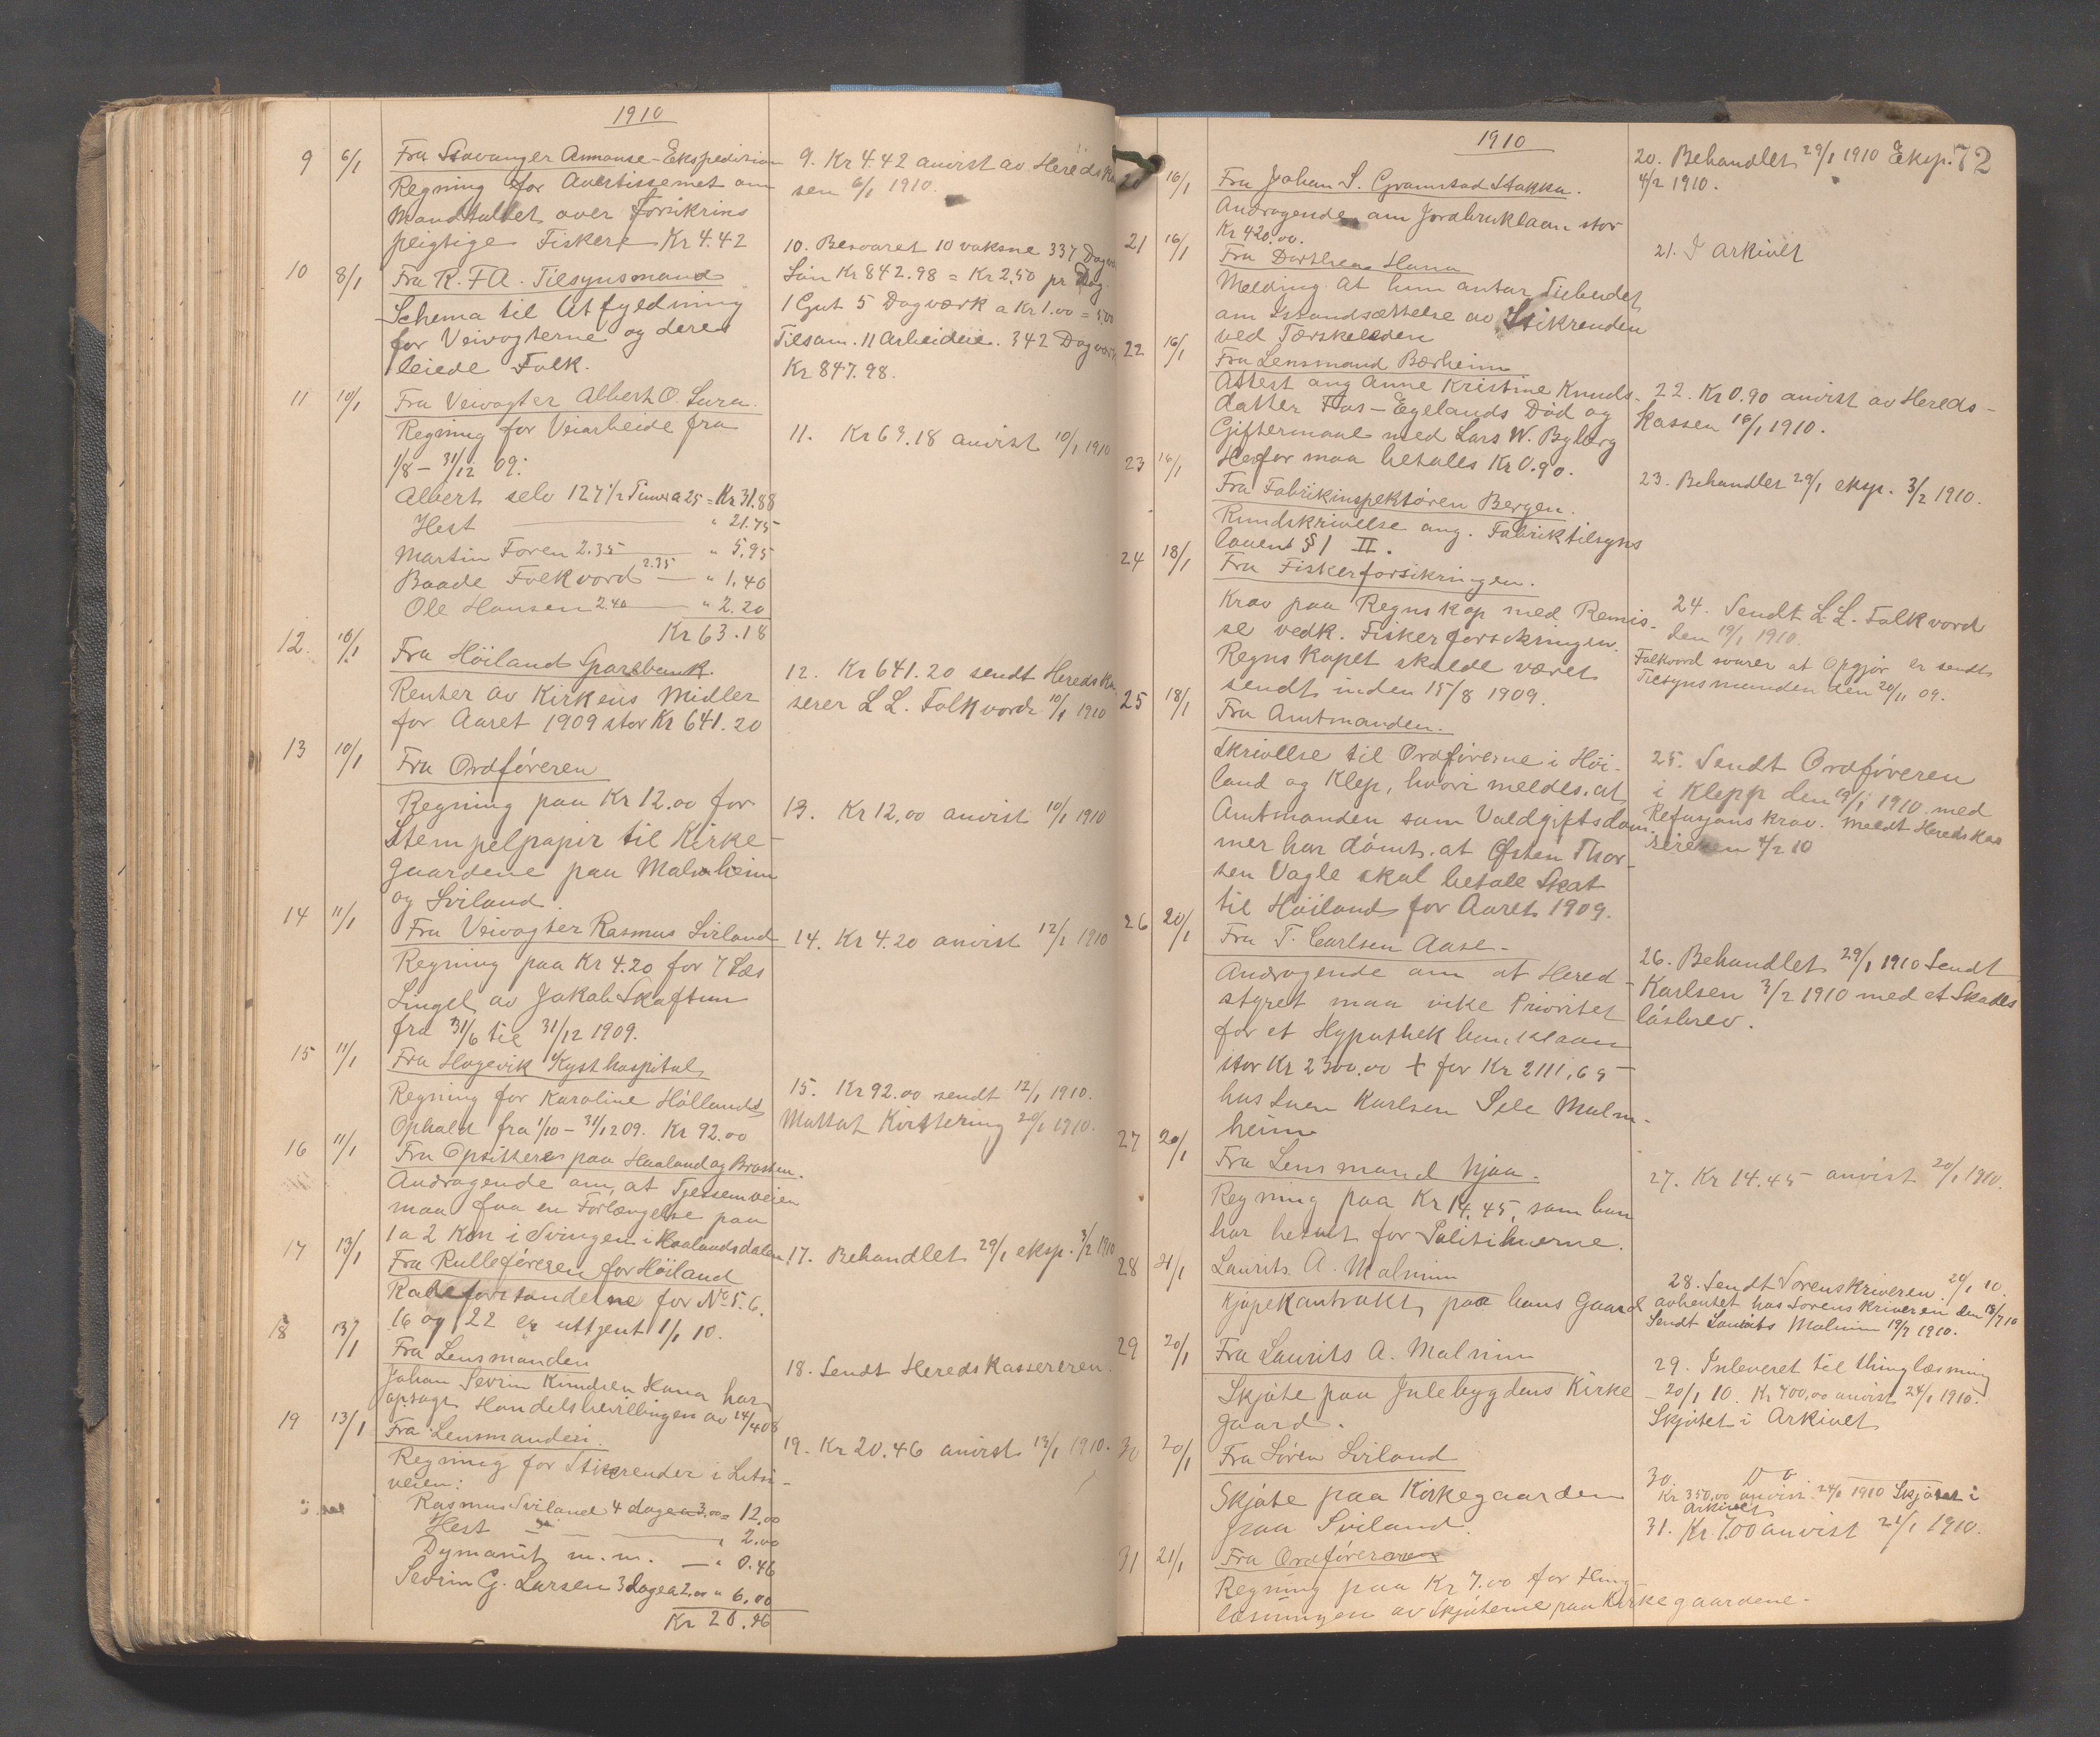 1910
9 6/1 Fra Stavanger Annonse-Ekspedision
Regning for Avertissemet om
Mandtallet over forsikrins
pligtige Fiskere Kr 4.42
9. Kr 4.42 anvist av Hereds Kas
sen 6/1 1910.
10 8/1 Fra R. F A. Tilsynsmand
Schema til Utfyldning
for Veivogterne og deres
leiede Folk.
10. Besvaret 10 voksne 337 Dagv
Løn Kr 842.98 = Kr 2,50 pr Dag.
1 Gut 5 Dagværk a Kr 1.00 = 5,00
Tilsam. 11 Arbeidere. 342 Dagværk
Kr 847.98.
11 10/1 Fra Veivogter Albert O. Lura.
Regning for Veiarbeide fra
1/8 - 31/12 09:
Albert selv 127 1/2 Timer a 25 = Kr 31.88
Hest " 21.75
Martin Foren 2.35 " 5,95
Baade Folkvord 2.35 " 1,40
Ole Hansen 2.40 " 2.20
Kr 63.18
11. Kr 63.18 anvist 10/1 1910
12. 10/1 Fra Höiland Sparebank.
Renter av Kirkens Midler
for Aaret 1909 stor Kr 641.20
12. Kr 641.20 sendt Hereds Ka
serer L L. Folkvord 10/1 1910
13 10/1 Fra Ordføreren
Regning paa Kr 12.00 for
Stempelpapir til Kirke-
gaardene paa Malmheim
og Sviland.
13. Kr 12,00 anvist 10/1 1910
14 11/1 Fra Veivogter Rasmus Sviland
Regning paa Kr 4.20 for 7 Læs
Singel av Jakob Skaftun
fra 31/6 til 31/12 1909.
14. Kr 4.20 anvist 12/1 1910
15 11/1 Fra Hagevik Kysthospital
Regning for Karoline Höllands
Ophold fra 1/10 - 31/12 09. Kr 92.00
15. Kr 92.00 sendt 12/1 1910.
Mottat Kvittering 20/1 1910.
16 11/1 Fra Opsittere paa Haaland og Brattem.
Andragende om, at Tjessemveien
maa faa en Forlængelse paa
1 a 2 Km i Svingen i Haalandsdalen
17 13/1 Fra Rulleføreren for Höiland
Rodeforstanderne for No 5. 6.
16 og 22 er uttjent 1/1 10.
17. Behandlet 29/1 eksp. 3/2 1910
18 13/1 Fra Lensmanden
Johan Sevrin Knudsen Hana har
opsagt Handelsbevillingen av 14/4 08
18. Sendt Hereds Kassereren.
19 13/1 Fra Lensmanden.
Regning for Stikrender i Lutsi-
veien:
Rasmus Sviland 4 dage a 3,00 = 12,00
Hest " 2.00
Dynamit m. m. " 0.46
Sevrin G. Larsen 3 dage a 2.00 " 6,00
Kr 20.46
19. Kr 20.46 anvist 13/1 1910.
1910
72
20 16/1 Fra Johan S. Gramstad Stokka.
Andragende om Jordbruklaan stor
Kr 420.00.
20. Behandlet 29/1 1910 Eksp.
4/2 1910.
21 16/1 Fra Dorthea Hana
Melding at hun antar Tilbudet
om Istandsættelse av Stikrenden
ved Tærskeleden
21. I arkivet
22 16/1 Fra Lensmand Bærheim
Attest ang Anne Kristine Knuds-
datter Fos-Egelands Död og
Giftermaal med Lars W. Byberg
Herfor maa betales Kr 0.90.
22. Kr 0.90 anvist av Hereds-
kassen 16/1 1910.
23 16/1 Fra Fabrikinspektøren Bergen.
Rundskrivelse ang. Fabriktilsyns
loven § 1 II.
23. Behandlet 29/1 eksp. 3/2 1910.
24 18/1 Fra Fiskerforsikringen.
Krav paa Regnskap med Remis-
se vedk. Fiskerforsikringen.
Regnskapet skulde været
sendt inden 15/8 1909.
24. Sendt L. L. Folkvord
den 19/1 1910.
Folkvord svarer at Opgjør er sendt
Tilsynsmanden den 20/11 09.
25 18/1 Fra Amtmanden.
Skrivelse til Ordførerne i Höi-
land og Klep, hvori meldes, at
Amtmanden som Voldgiftsdom-
mer har dömt, at Østen Thor-
sen Vagle skal betale Skat
til Höiland for Aaret 1909.
25. Sendt Ordføreren
i Klepp den 19/1 1910 med
Refusjons krav. Meldt Hereds Kas
sereren 4/2 10
26 20/1 Fra T. Carlsen Aase-
Andragende om at Hered-
styret maa vike Prioritet
for et Hypothekbanklaan
stor Kr 2300.00 + for Kr 2111.65
hos Sven Karlsen Sele Malm-
heim
26. Behandlet 29/1 1910 Sendt
Karlsen 3/2 1910 med et Skades
lösbrev.
27 20/1 Fra Lensmand Njaa.
Regning paa Kr 14.45, som han
har betalt for Politihuerne.
27. Kr 14.45 anvist 20/1 1910.
28 21/1 Laurits. A. Malmin
Kjøpekontrakt paa hans Gaard
28. Sendt Sorenskriveren 24/1 10.
avhentet hos Sorenskriveren den 18/7 10
Sendt Laurits Malmin 19/7 1910.
29 20/1 Fra Laurits A. Malmin
Skjøte paa Julebygdens Kirke
gaard.
29. Inleveret til thinglæsning
- 20/1 10. Kr 700,00 anvist 24/1 1910.
Skjötet i Arkivet
30 20/1 Fra Sören Sviland
Skjøte paa Kirkegaarden
paa Sviland.
30. Do
Kr 350,00 anvist 24/1 1910 Skjötet i
Arkivet
31 21/1 Fra Ordføreren
Regning paa Kr 7.00 for thing-
læsningen av Skjøterne paa Kirkegaardene.
31. Kr. 7.00 anvist 21/1 1910.